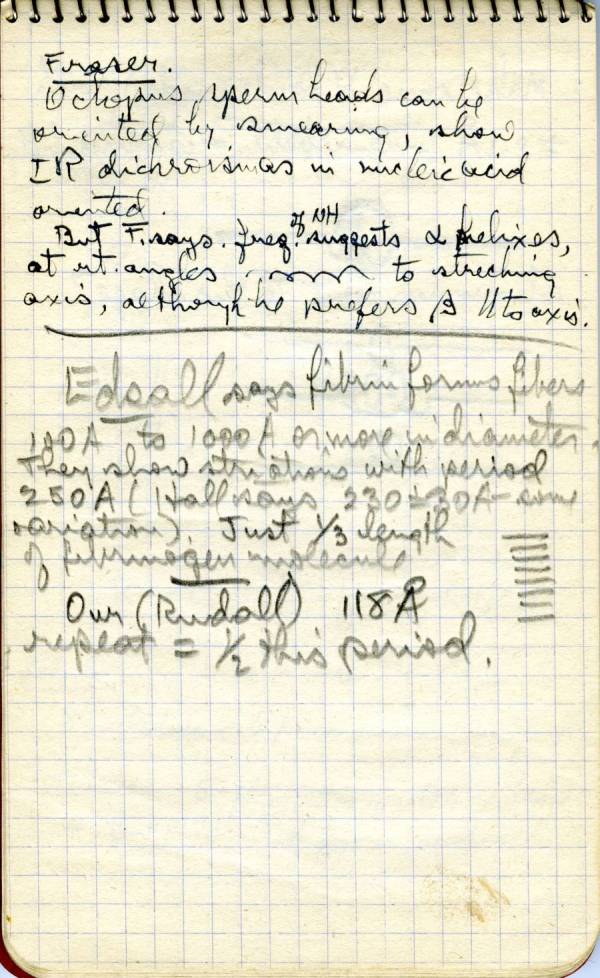 Fraser.
Octopus sperm heads can be
oriented by smearing, show
IR dichroism as in nucleic acid
oriented.
But F. says freq. of NH suggests α helixes,
at rt. angles to streching
axis, although he prefers β || to axis.
Edsall says fibrin forms fibers
100A to 1000A or more in diameter.
They show striations with period
250A (Hall says 230±30A - some
variation). Just 1/3 length
of fibrinogen molecule
Our (Rudall) 118A
repeat = 1/2 this period.